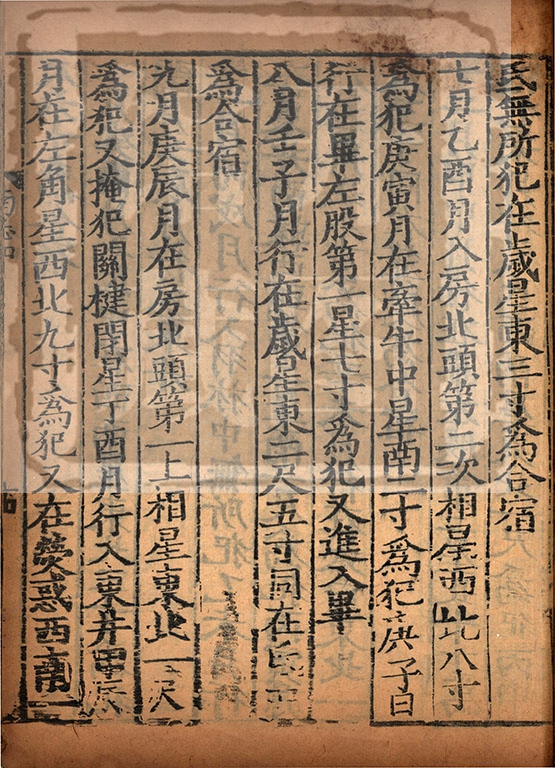 氐無所犯在歲星東三寸爲合宿
七月乙酉月入房北頭第二次相星西北八寸
爲犯庚寅月在牽牛中星南二寸爲犯庚子日
行在畢左股第一星七寸爲犯又進入畢
八月壬子月行在歲星東二尺五寸同在氐
爲合宿
九月庚辰月在房北頭第一上相星東北一尺
爲犯又掩犯關楗閉星丁酉月行入東井甲辰
月在左角星西北九寸爲犯又在熒惑西南一